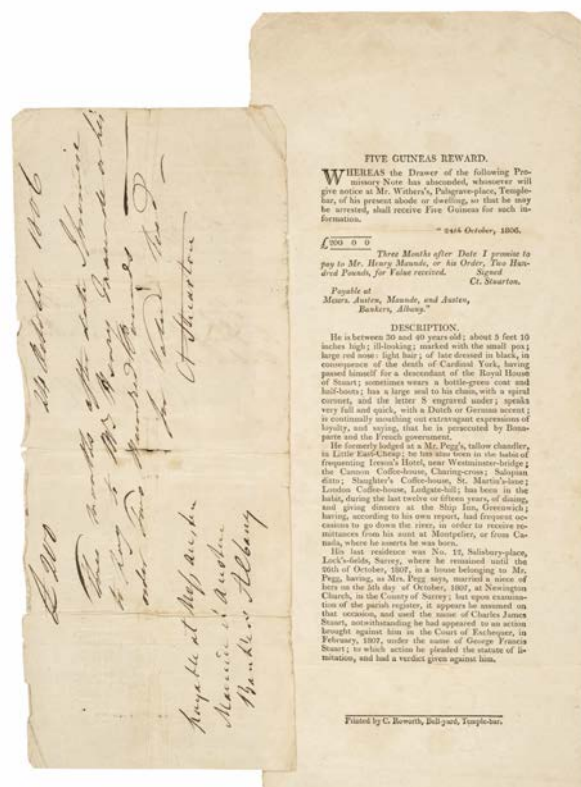 £ 200 24 October 1806
Three months after date I promise
to pay to Mr Henry Maunde or his
order Two Hundred Pounds
for value recd
Ct Stuarton
Payable at Messrs Austen
Maunde & Austin
Bankers Albany
FIVE GUINEAS REWARD.
WHEREAS the Drawer of the following Pro-
missory Note has absconded, whosoever will
give notice at Mr. Withers's, Palsgrave-place, Temple-
bar, of his present abode or dwelling, so that he may
be arrested, shall receive Five Guineas for such in-
formation.
" 24th October, 1806.
£200 0 0
Three Months after Date I promise to
pay to Mr. Henry Maunde, or his Order, Two Hun-
dred Pounds, for Value received. Signed
Ct. Stuarton.
Payable at
Messrs. Austen, Maunde, and Austen,
Bankers, Albany."
DESCRIPTION.
He is between 30 and 40 years old; about 5 feet 10
inches high; ill-looking; marked with the small pox;
large red nose: light hair; of late dressed in black, in
consequence of the death of Cardinal York, having
passed himself for a descendant of the Royal House
of Stuart; sometimes wears a bottle-green coat and
half-boots; has a large seal to his chain, with a spiral
coronet, and the letter S engraved under; speaks
very full and quick, with a Dutch or German accent;
is continually mouthing out extravagant expressions of
loyalty, and saying, that he is persecuted by Bona-
parte and the French government.
He formerly lodged at a Mr. Pegg's, tallow chandler,
in Little East-Cheap; he has also been in the habit of
frequenting Ireson's Hotel, near Westminster-bridge;
the Cannon Coffee-house, Charing-cross; Salopian
ditto; Slaughter's Coffee-house, St. Martin's-lane;
London Coffee-house, Ludgate-hill; has been in the
habit, during the last twelve or fifteen years, of dining,
and giving dinners at the Ship Inn, Greenwich;
having, according to his own report, had frequent oc-
casions to go down the river, in order to receive re-
mittances from his aunt at Montpelier, or from Ca-
nada, where he asserts he was born.
His last residence was No. 12, Salisbury-place,
Lock's-fields, Surrey, where he remained until the
26th of October, 1807, in a house belonging to Mr.
Pegg, having, as Mrs. Pegg says, married a niece of
hers on the 5th day of October, 1807, at Newington
Church, in the County of Surrey; but upon examina-
tion of the parish register, it appears he assumed on
that occasion, and used the name of Charles James
Stuart, notwithstanding he had appeared to an action
brought against him in the Court of Exchequer, in
February, 1807, under the name of George Francis
Stuart; to which action he pleaded the statute of li-
mitation, and had a verdict given against him.
Printed by C. Roworth, Bell-yard, Temple-bar.